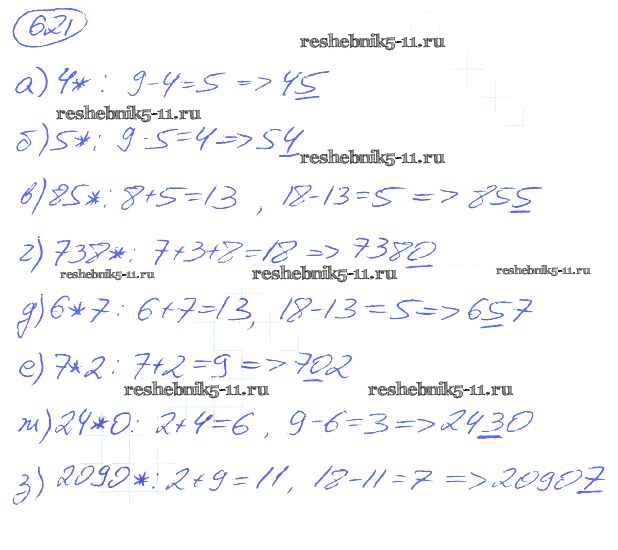 621
reshebnik5-11.ru
а) 4*: 9-4=5 => 45
reshebnik5-11.ru
б) 5*: 9-5=4 => 54
reshebnik5-11.ru
в) 85*: 8+5=13, 18-13=5 => 855
г) 738*: 7+3+8=18 => 7380
reshebnik5-11.ru reshebnik5-11.ru reshebnik5-11.ru
д) 6*7: 6+7=13, 18-13=5 => 657
е) 7*2: 7+2=9 => 702
reshebnik5-11.ru reshebnik5-11.ru
ж) 24*0: 2+4=6, 9-6=3 => 2430
reshebnik5-11.ru reshebnik5-11.ru
з) 2090*: 2+9=11, 18-11=7 => 20907